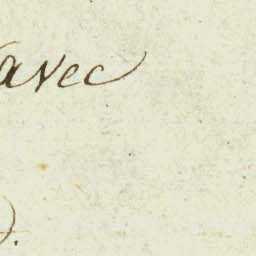 avec
).